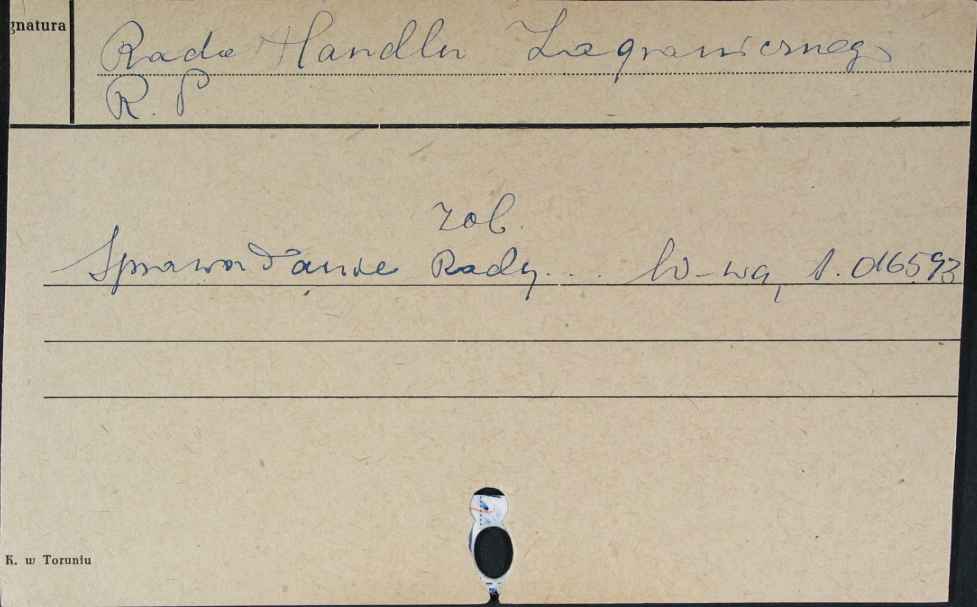 gnatura
Rada Handlu Zagranicznego
R. P
zob.
Sprawozdanie Rady... W-wa, S. 016593
K. w Toruniu